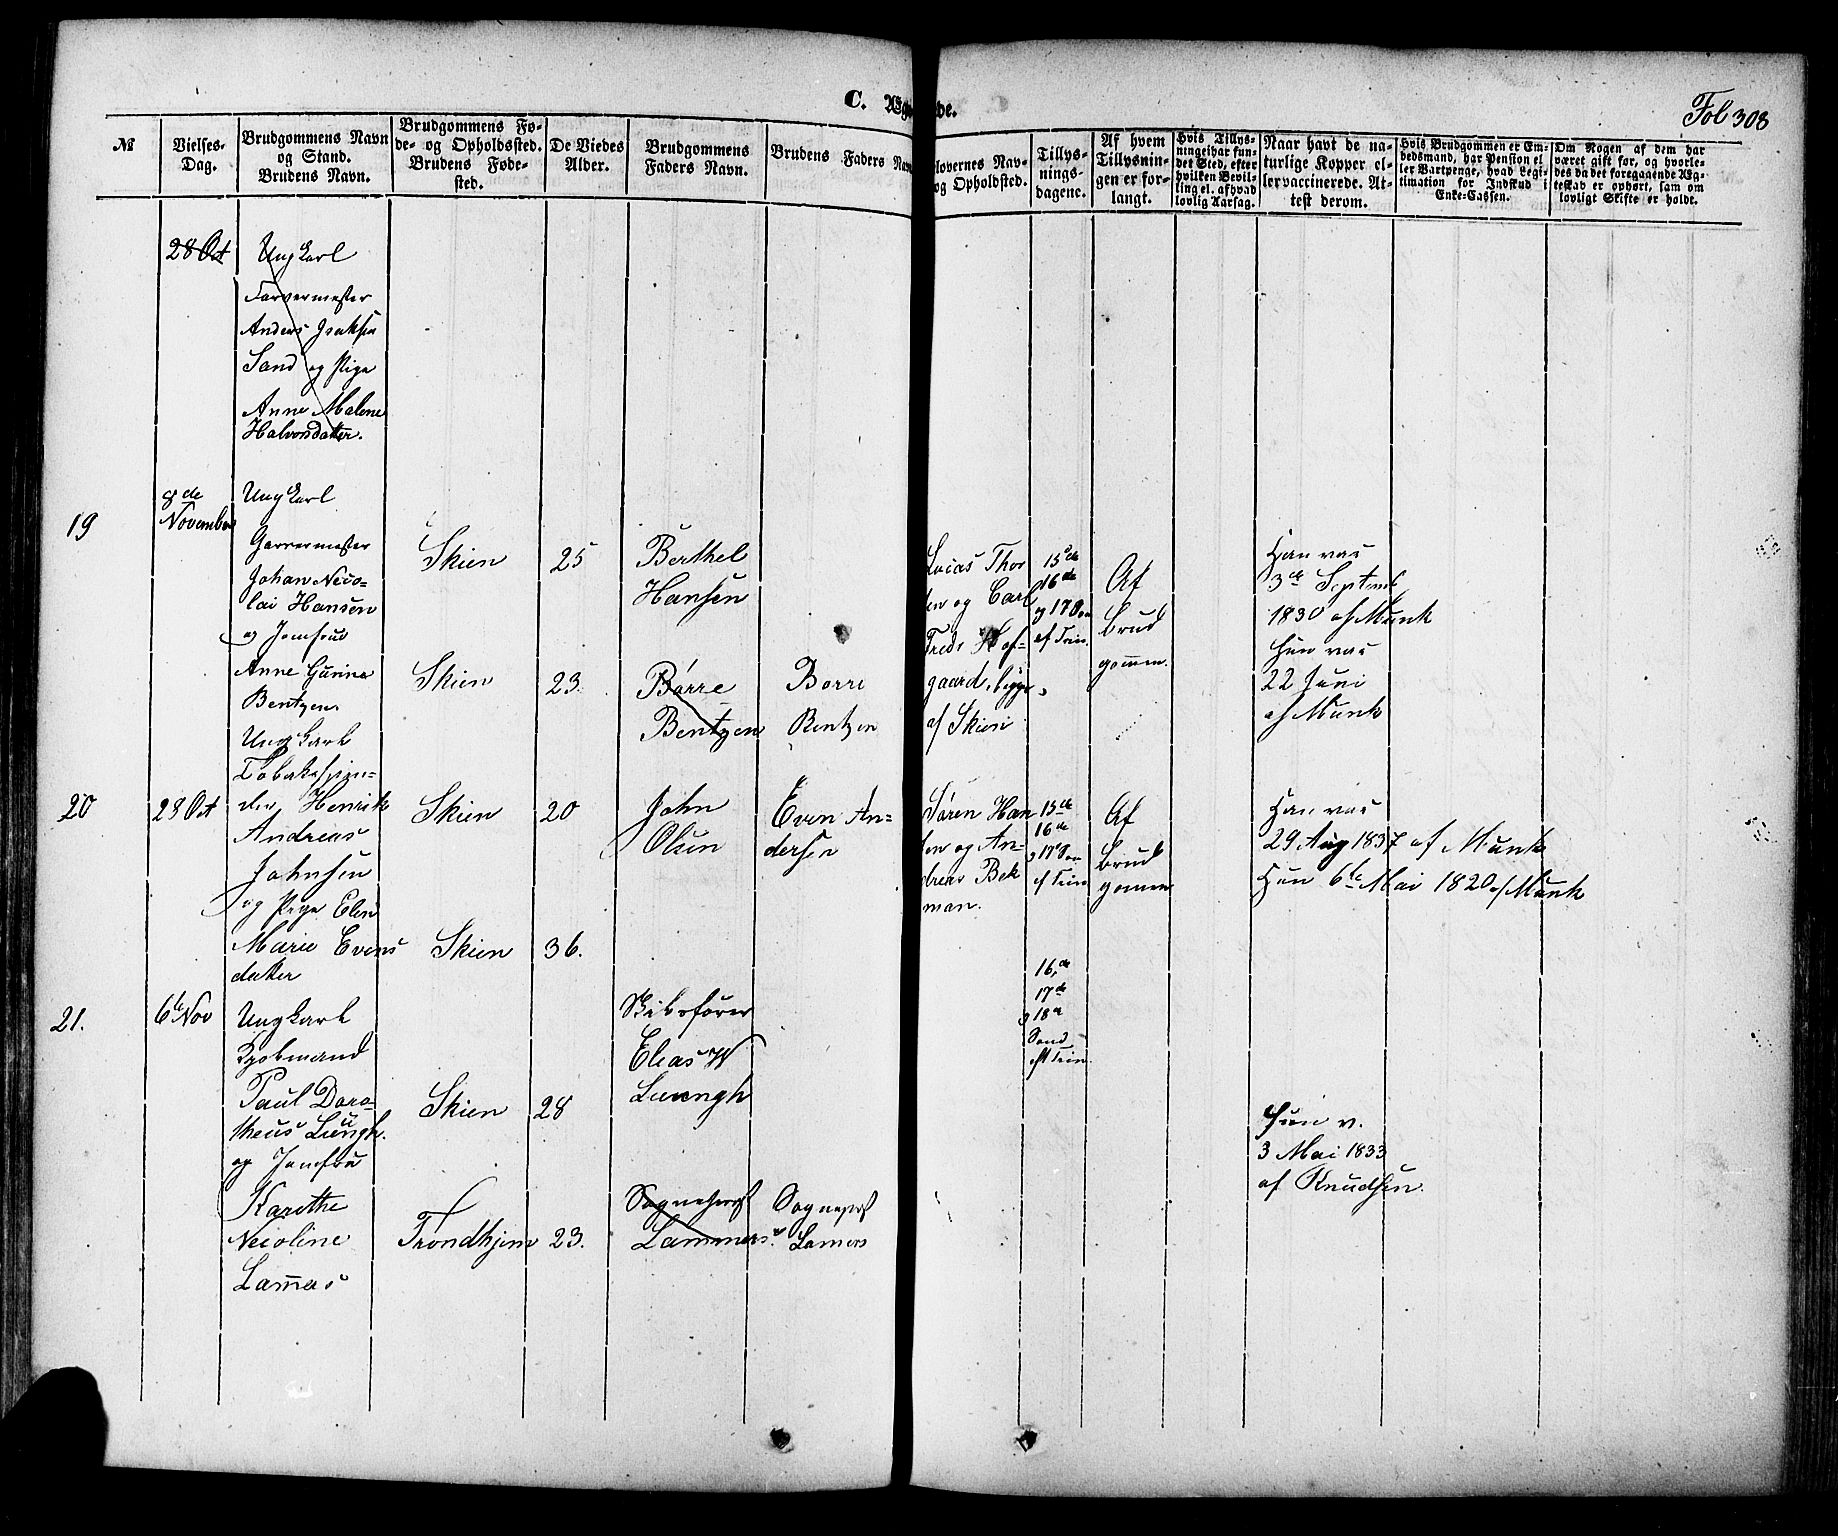 C. Ægt de.
Fol 308
№
Vielses-
Dag.
Brudgommens Navn
og Stand.
Brudens Navn.
Brudgommens Fø-
de- og Opholdssted.
Brudens Føde-
sted.
De Viedes
Alder.
Brudgommens
Faders Navn.
Brudens Faders Navn
lovernes Nav-
og Opholdsted.
Tillys-
nings-
dagene.
Af hvem
Tillysnin-
gen er for-
langt.
Hvis Tillys-
ningei har fun-
det Sted, efter
hvilken Bevil-
ling el. af hvad
lovlig Aarsag.
Naar havt de na-
turlige Kopper el-
ler vaccinerede. At-
test derom.
Hvis Brudgommen er Em-
bedsmand, har Pension el-
ler Vartpenge, hvad Legi-
timation for Indskud i
Enke-Cassen.
Om Nogen af dem har
været gift før, og hvorle-
des da det foregaaende Æg-
teskab er ophørt, sam om
lovligt Skifte er holdt.
28 Oct
Ungkarl
Farvermester
Anders Isaksen
Sand og Pige
Anne Malene
Halvorsdatter.
19
8de
November
Ungkarl
Garvermester
Johan Nico-
lai Hansen
og Jomfrue
Anne Gurine
Bentzen.
Skien
25
Berthel
Hansen
Skien
23.
Børre
Bentzen
Borre
Bentzen
Lucas Thor
sen og Carl
Fredr Hof-
gaard, begge
af Skien
15de
16de
og 17 Søn
ef Trin.
Af
Brud
gommen.
Han vac
3de Septemb
1830 af Munk
Hun vac
22 Juni
af Munk
20
28 Oct
Ungkarl
Tobakspin-
der Henrik
Andreas
Johnsen
og Pige Elen
Marie Evens
datter
Skien
20
John
Olsen
Even An-
dersen
Skien
36.
Søren Han
sen og An-
dreas Bek
man.
15de
16de
og 17e Søn
ef Trin
Af
Brud
gommen
Han vac
29 Aug 1837 af Munk
Hun 6te Mai 1820 af Munk
21.
6te Nov
Ungkarl
Kjøbmand
Paul Doro-
theus Lüngh.
og Jomfru
Karithe
Nicoline
Lamers
Skien
28
Skibsfører
Elias W
Luungh
Trondhjem
23.
Sogneprest
Lammers.
Sogneprst
Lamers
16,de
17de
og 18e
Sønd
eft Trin.
Hun v.
3 Mai 1833
af Knudsen.